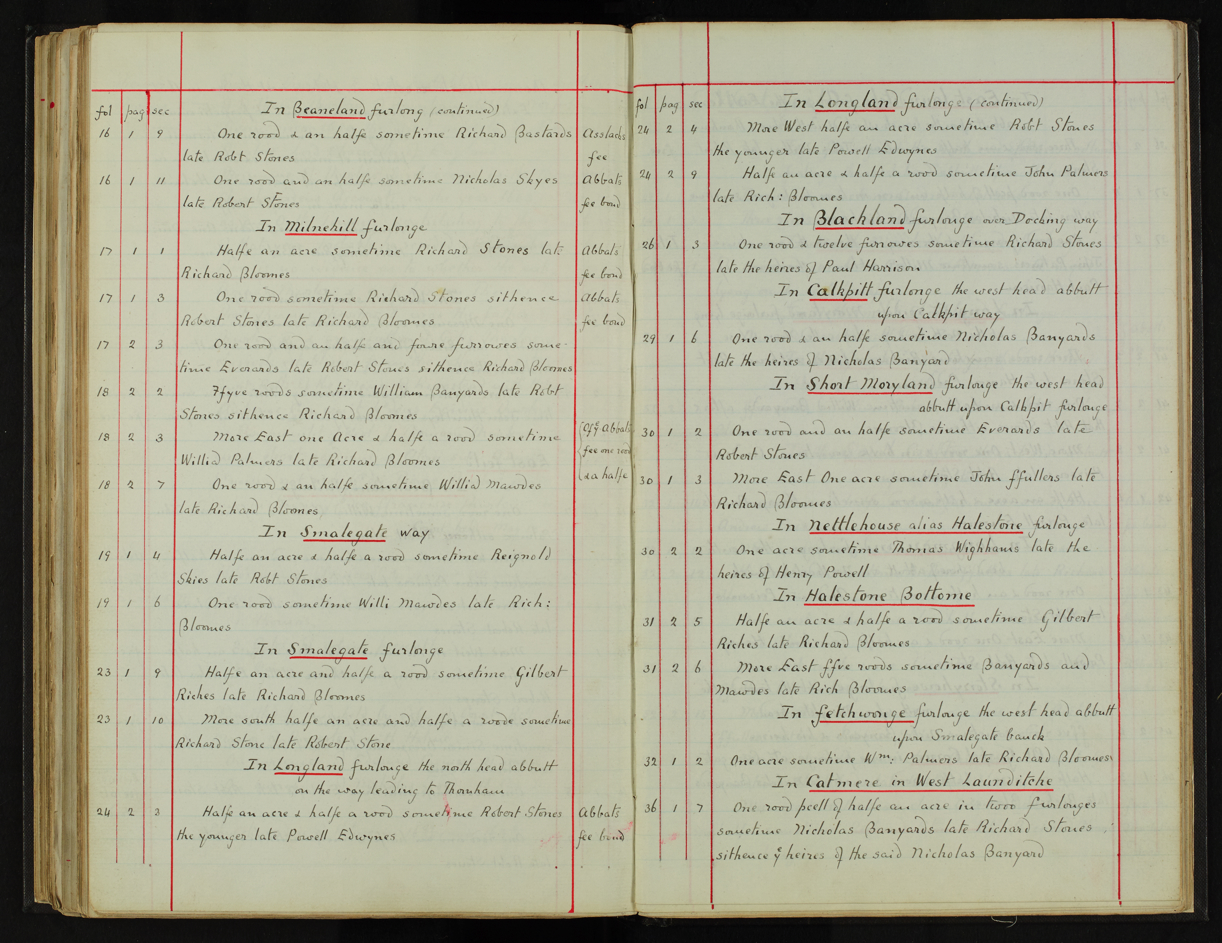 fol pag sec In Beaneland furlong (continued)
16 1 9 One rood & an halfe sometime Richard Bastards Asslacks
late Robt Stones fee
16 1 11 One rood and an halfe sometime Nicholas Skyes Abbats
late Robert Stones fee bond
In Milnehill furlonge
17 1 1 Halfe an acre sometime Richard Stones late Abbats
Richard Bloomes fee bond
17 1 3 One rood sometime Richard Stones sithence Abbats
Robert Stones late Richard Bloomes fee bond
17 2 3 One rood and an halfe and fowre furrowes some-
time Everards late Robert Stones sithence Richard Bloomes
18 2 2 Ffyve roods sometime William Banyards late Robt
Stones sithence Richard Bloomes
18 2 3 More East one Acre & halfe a rood sometime Abbats
Willia Palmers late Richard Bloomes fee one rood
18 2 7 One rood & an halfe sometime Willia Mawdes & a halfe
late Richard Bloomes
In Smalegate way
19 1 4 Halfe an acre & halfe a rood sometime Reignold
Skies late Robt Stones
19 1 6 One rood sometime Willi Mawdes late Rich:
Bloomes
In Smalegate furlonge
23 1 9 Halfe an acre and halfe a rood sometime Gilbert
Riches late Richard Bloomes
23 1 10 More south halfe an acre and halfe a roode sometime
Richard Stone late Robert Stone
In Longland furlonge the north head abbutt
on the way leading to Thornham
24 2 3 Halfe an acre & halfe a rood sometime Robert Stones Abbats
the younger late Powell Edwynes fee bond
fol pag sec In Longland furlonge (continued)
24 2 4 More West halfe an acre sometime Robt Stones
the younger late Powell Edwynes
24 2 9 Halfe an acre & halfe a rood sometime John Palmers
late Rich: Bloomes
In Blackland furlonge over Docking way
26 1 3 One rood & twelve furrowes sometime Richard Stones
late the heires of Paul Harrison
In Calkpitt furlonge the west head abbutt
upon Calkpit way
29 1 6 One rood & an halfe sometime Nicholas Banyards
late the heires of Nicholas Banyard
In Short Moryland furlonge the west head
abbutt upon Calkpit furlonge
30 1 2 One rood and an halfe sometime Everards late
Robert Stones
30 1 3 More East One acre sometime John ffullers late
Richard Bloomes
In Nettlehouse alias Halestone furlonge
30 2 2 One acre sometime Thomas Wighhams late the
heires of Henry Powell
In Halestone Bottome
31 2 5 Halfe an acre & halfe a rood sometime Gilbert
Riches late Richard Bloomes
31 2 6 More East ffve roods sometime Banyards and
Mawdes late Rich Bloomes
In fetchwonge furlonge the west head abbutt
upon Smalegate banck
32 1 2 One acre sometime Wm: Palmers late Richard Bloomes
In Catmere in West Launditche
36 1 7 One rood pcell of halfe an acre in twoo furlonges
sometime Nicholas Banyards late Richard Stones
sithence ye heires of the said Nicholas Banyard